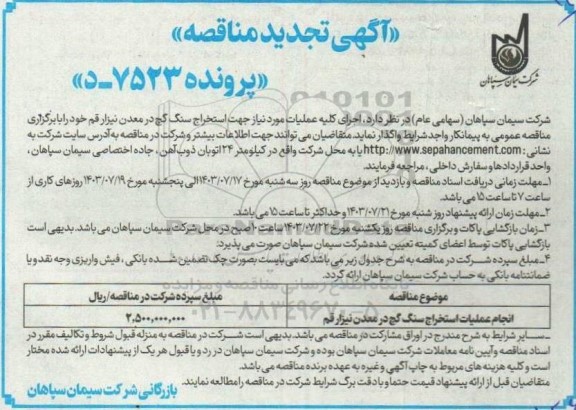 «آگهی تجدید مناقصه»
«پرونده ۷۵۲۳-د»
شرکت سیمان سپاهان
شرکت سیمان سپاهان (سهامی عام) در نظر دارد، اجرای کلیه عملیات مورد نیاز جهت استخراج سنگ گچ در معدن نیزار قم خود را با برگزاری
مناقصه عمومی به پیمانکار واجد شرایط واگذار نماید. متقاضیان می توانند جهت اطلاعات بیشتر و شرکت در مناقصه به آدرس سایت شرکت به
نشانی: http://www.sepahancement.com یا به محل شرکت واقع در کیلومتر ۲۴ اتوبان ذوب آهن، جاده اختصاصی سیمان سپاهان،
واحد قراردادها و سفارش داخلی، مراجعه فرمایند.
۱-مهلت زمانی دریافت اسناد مناقصه و بازدید از موضوع مناقصه روز سه شنبه مورخ ۱۴۰۳/۰۷/۱۷ الی پنجشنبه مورخ ۱۴۰۳/۰۷/۱۹ روزهای کاری از
ساعت ۷ تا ساعت ۱۵ می باشد.
۲-مهلت زمان ارائه پیشنهاد روز شنبه مورخ ۱۴۰۳/۰۷/۲۱ و حداکثر تا ساعت ۱۵ می باشد.
۳-زمان بازگشایی پاکات و برگزاری مناقصه روز یکشنبه مورخ ۱۴۰۳/۰۷/۲۲ ساعت ۱۰ صبح در محل شرکت سیمان سپاهان می باشد. بدیهی است
بازگشایی پاکات توسط اعضای کمیته تعیین شده شرکت سیمان سپاهان صورت می پذیرد:
۴-مبلغ سپرده شرکت در مناقصه به شرح جدول زیر می باشد که می بایست بصورت چک تضمین شده بانکی، فیش واریزی وجه نقد و یا
ضمانتنامه بانکی به حساب شرکت سیمان سپاهان ارائه گردد.
موضوع مناقصه مبلغ سپرده شرکت در مناقصه/ ریال
انجام عملیات استخراج سنگ گچ در معدن نیزار قم ۲,۵۰۰,۰۰۰,۰۰۰
-سایر شرایط به شرح مندرج در اوراق مشارکت در مناقصه می باشد. بدیهی است شرکت در مناقصه به منزله قبول شروط و تکالیف مقرر در
اسناد مناقصه و آیین نامه معاملات شرکت سیمان سپاهان بوده و شرکت سیمان سپاهان در رد و یا قبول هر یک از پیشنهادات ارائه شده مختار
است و کلیه هزینه های مربوط به چاپ آگهی و غیره به عهده برنده مناقصه می باشد.
متقاضیان قبل از ارائه پیشنهاد قیمت حتما و با دقت برگ شرایط شرکت در مناقصه را مطالعه نمایند.
بازرگانی شرکت سیمان سپاهان